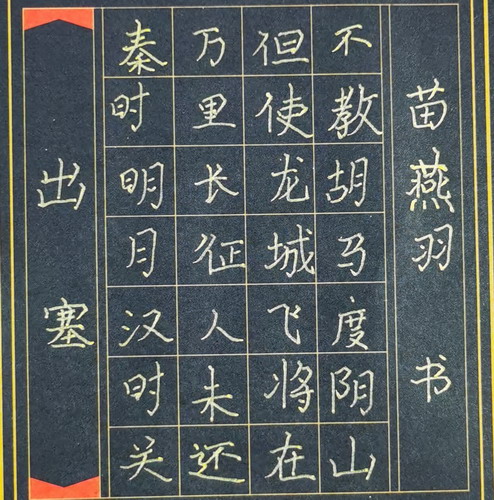 出塞
秦时明月汉时关
万里长征人未还
但使龙城飞将在
不教胡马度阴山
苗燕羽书